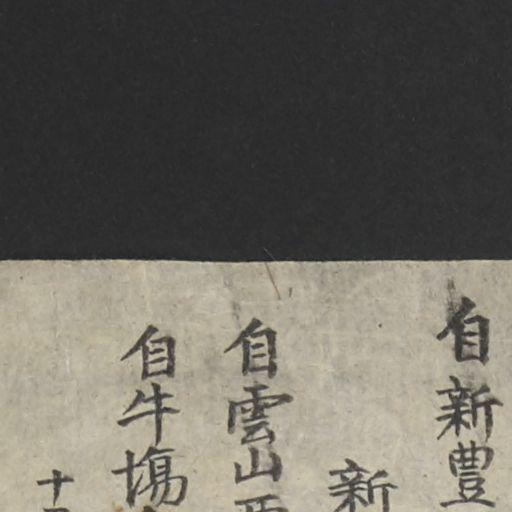 自新豊
新
自雲山
自牛塲
十